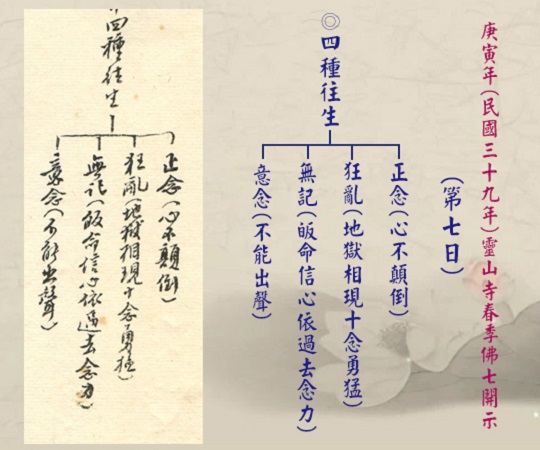 庚寅年(民國三十九年)靈山寺春季佛七開示
(第七日)
◎四種往生
正念(心不顛倒)
狂亂(地獄相現十念勇猛)
無記(皈命信心依過去念力)
意念(不能出聲)
四種往生
正念(心不顛倒)
狂亂(地獄相現十念勇猛)
無記(皈命信心依過去念力)
意念(不能出聲)